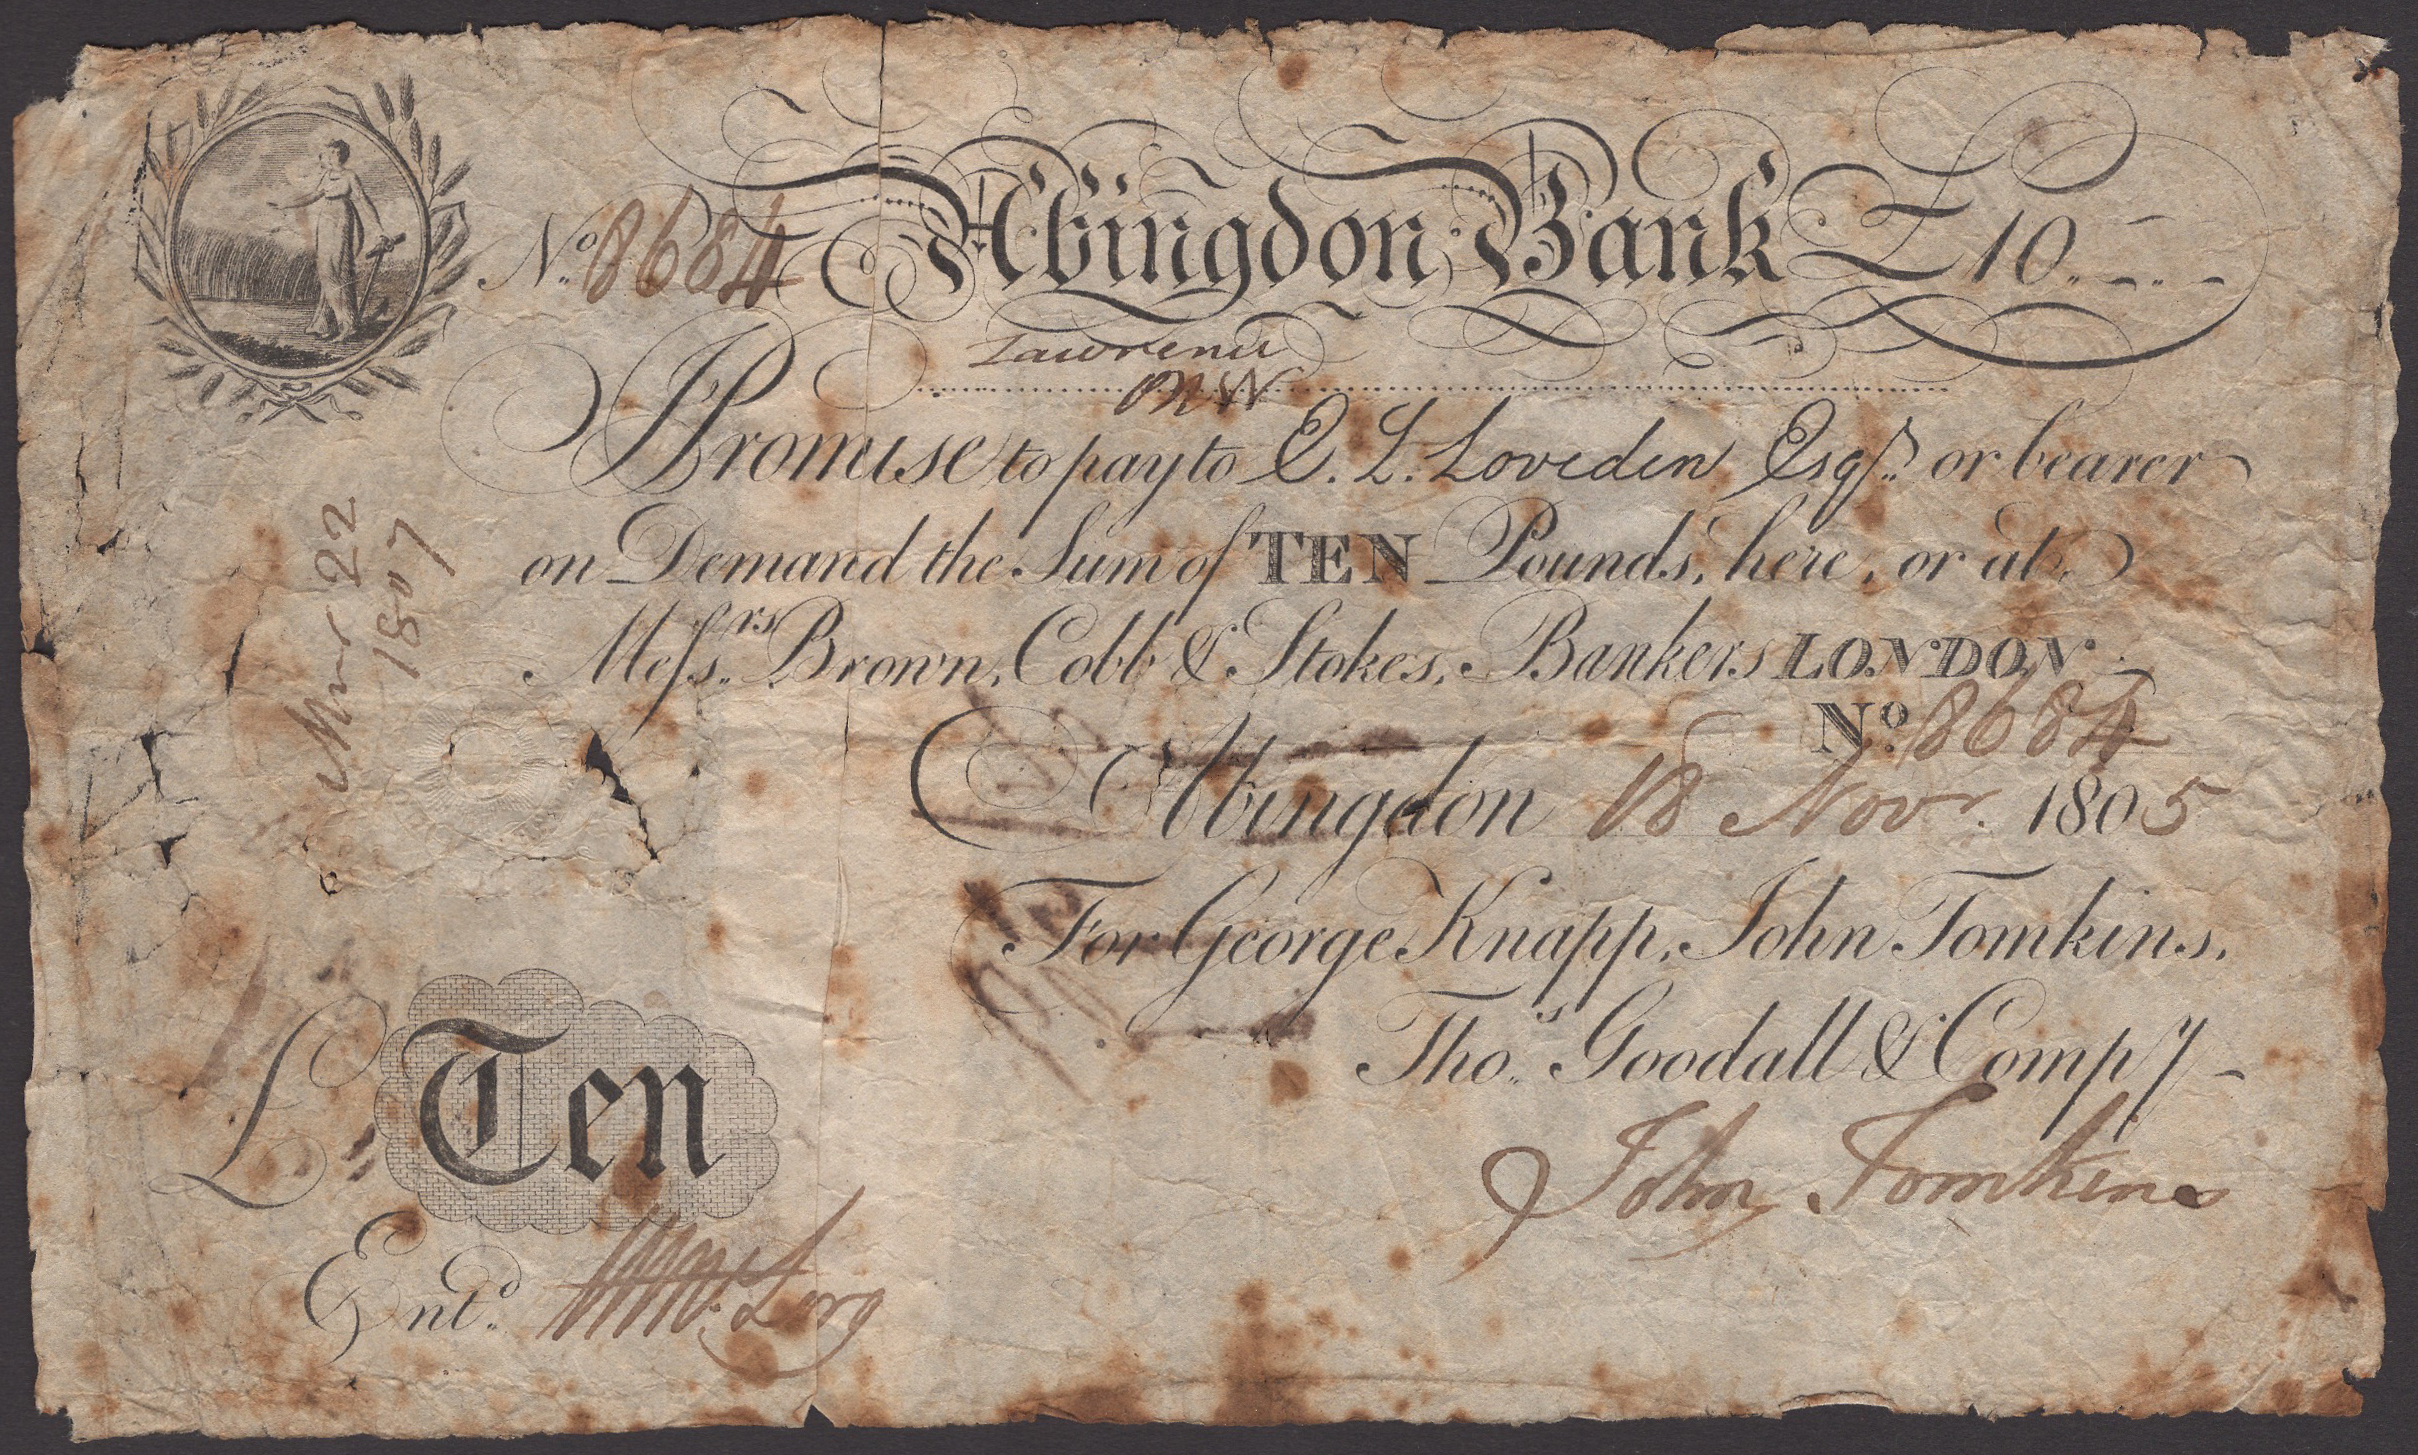 No. 8684 Abingdon Bank £10
Lawrence
I Promise to pay to E. L. Loveden Esqr. or bearer
on Demand the Sum of TEN Pounds, here, or at
Messrs. Brown, Cobb & Stokes, Bankers LONDON
No. 8684
Abingdon 18 Novr. 1805
For George Knapp, John Tomkins,
Thos. Goodall & Compy
£ Ten
John Tomkins
Entd.
22
1807